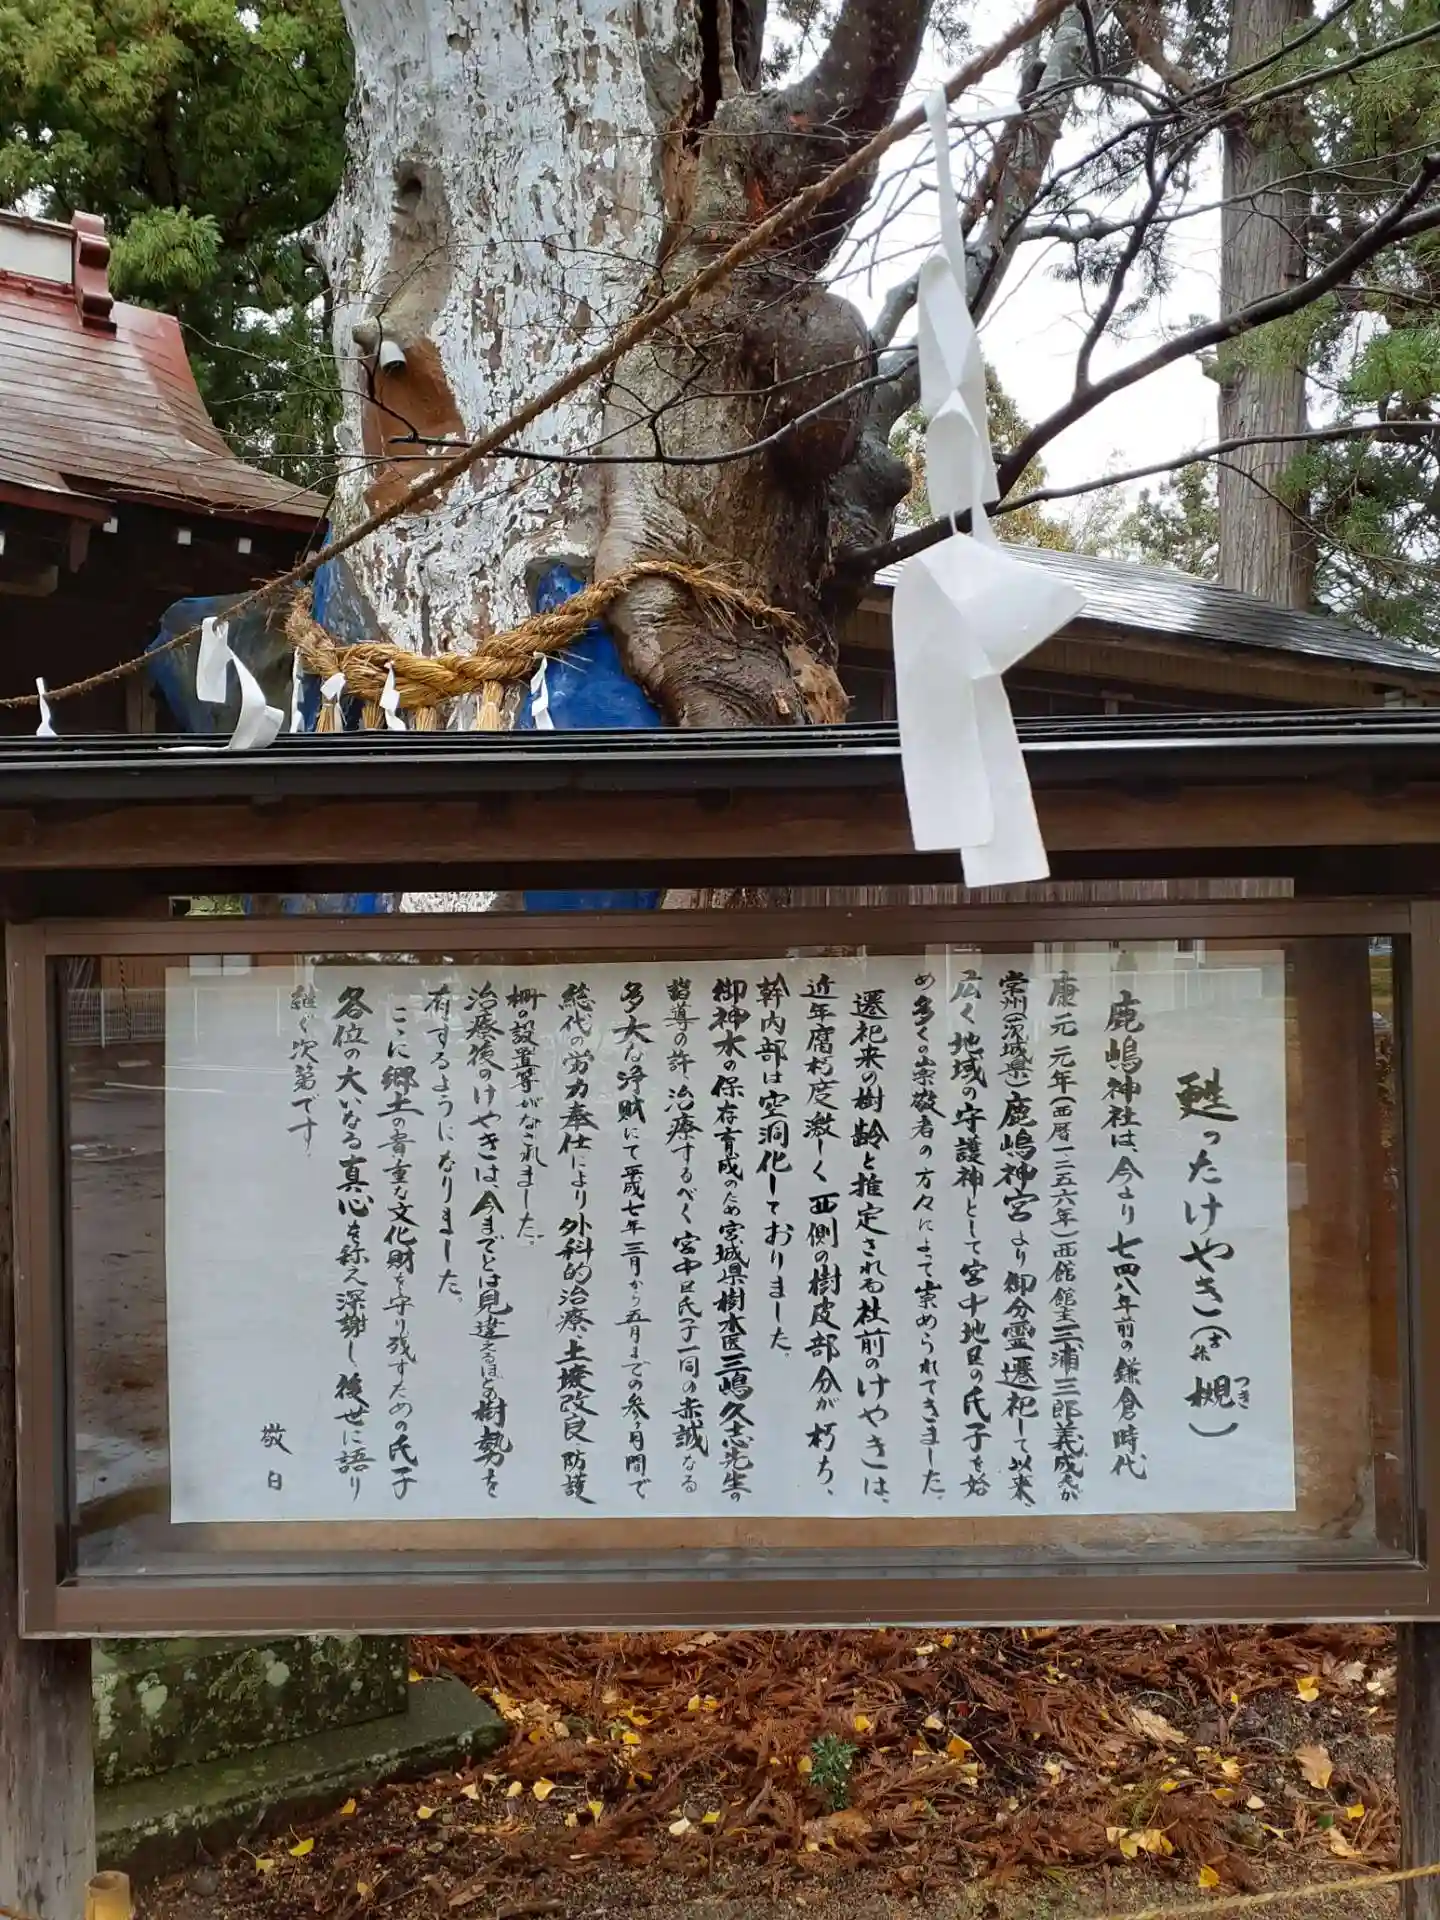 甦ったけやき(古称 槻つき)
鹿嶋神社は、今より七四八年前の鎌倉時代
康元元年(西暦一二五六年)西館館主三浦三郎義成氏が
常州(茨城県)鹿嶋神宮より御分霊遷祀して以来、
広く地域の守護神として宮中地区の氏子を始
め多くの崇敬者の方々によって崇められてきました。
遷祀来の樹齢と推定される社前のけやきは、
近年腐朽度激しく西側の樹皮部分が朽ち、
幹内部は空洞化しておりました。
御神木の保存育成のため宮城県樹木医三嶋久志先生の
諸導の許、治療するべく宮中区氏子一同の赤誠なる
多大な浄財にて平成七年三月から五月までの参ヶ月間で
総代の労力奉仕により外科的治療、土壌改良、防護
柵の設置等がなされました。
治療後のけやきは、今までとは見違えるほどの樹勢を
有するようになりました。
ここに郷土の貴重な文化財を守り残すための氏子
各位の大いなる真心を称え深謝し後世に語り
継ぐ次第です。
敬白